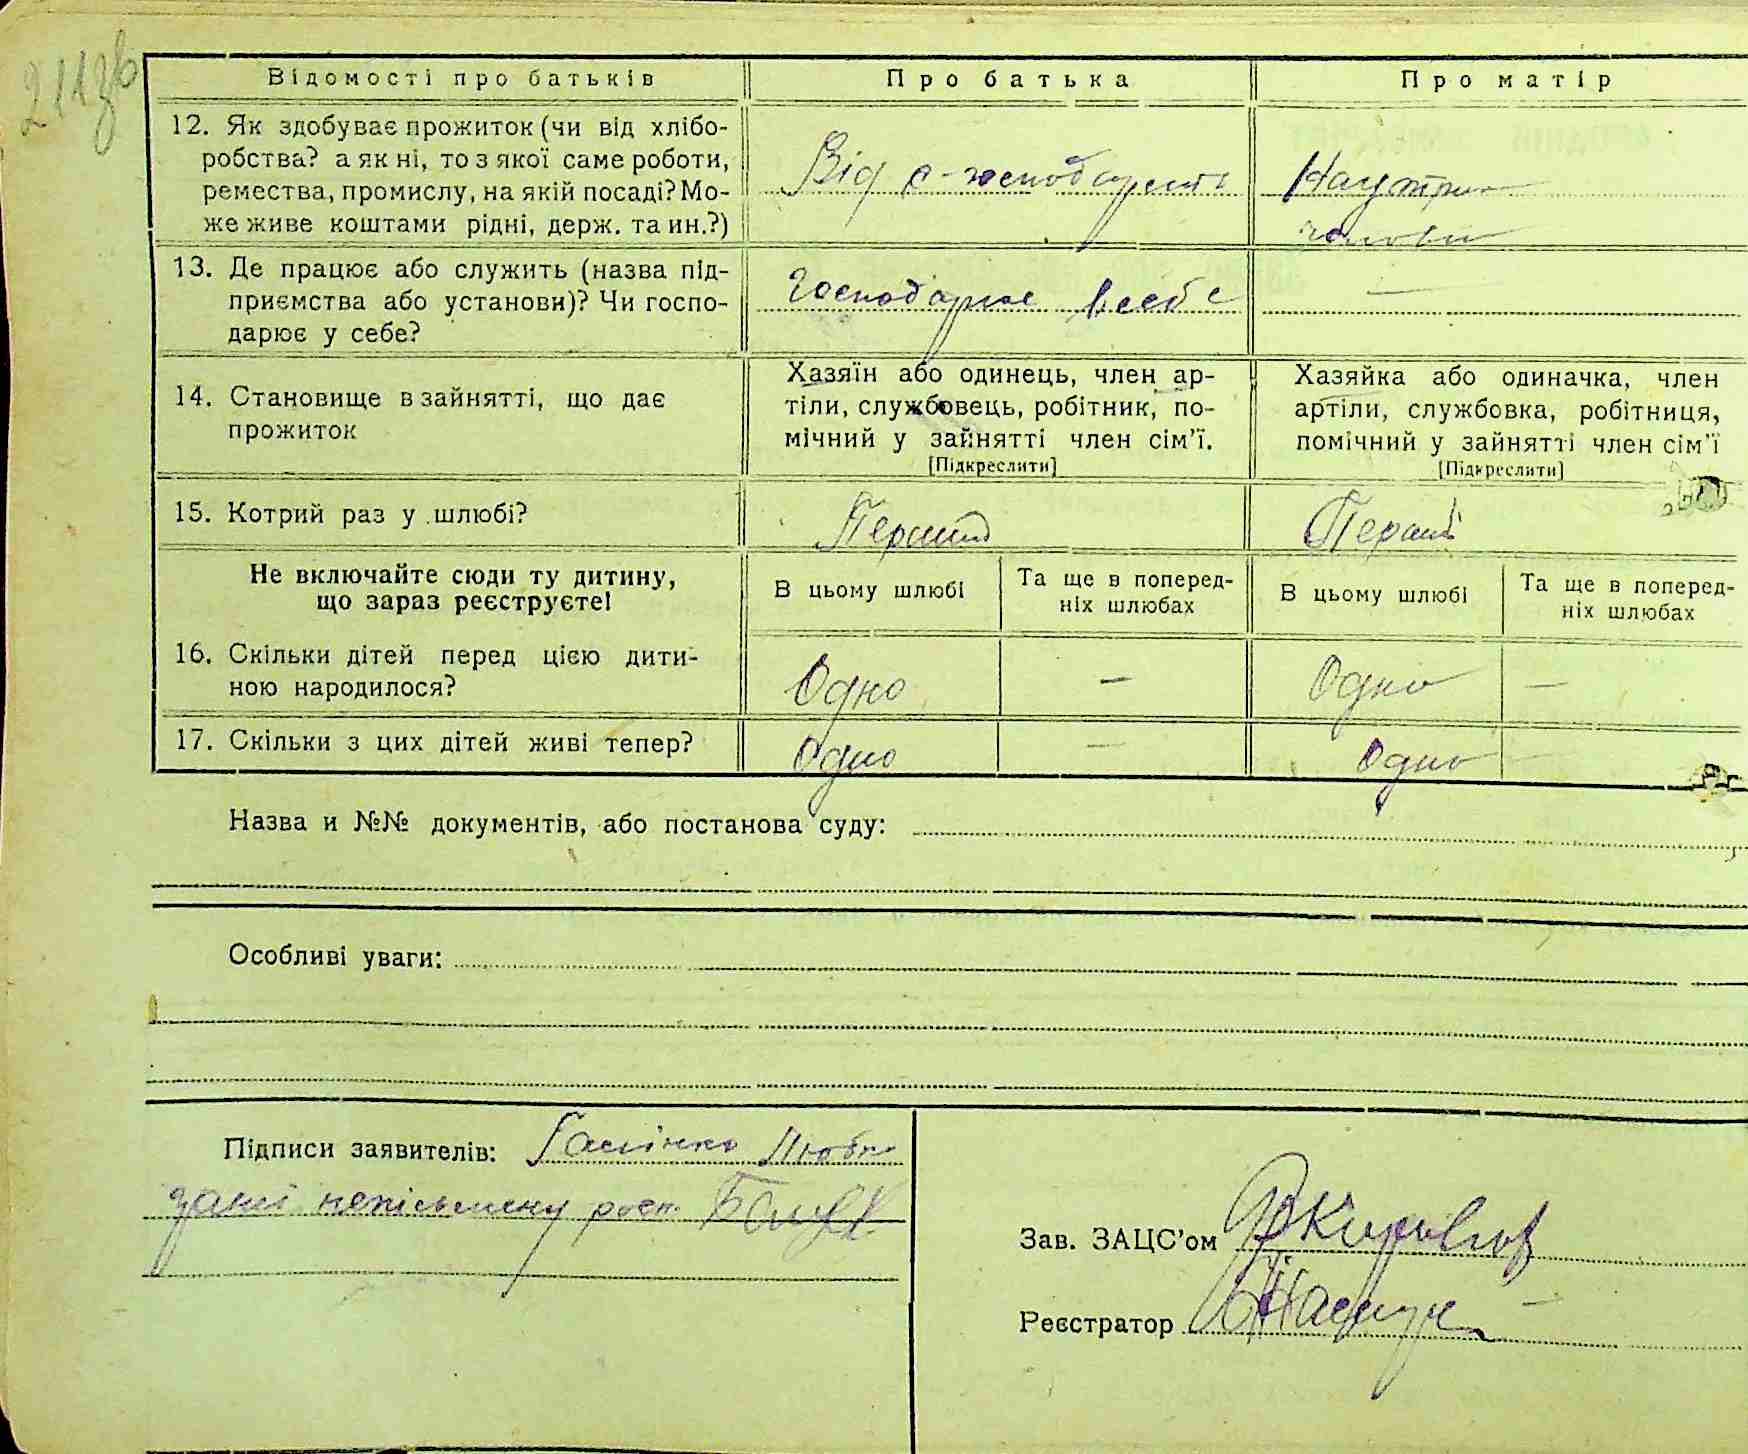 211зв
Відомості про батьків
Про батька
Про матір
12. Як здобуває прожиток (чи від хлібо-
робства? а як ні, то з якої саме роботи,
ремества, промислу, на якій посаді? Мо-
же живе коштами рідні, держ. та ин.?)
Від с-господарства
На утрим
чоловіка
13. Де працює або служить (назва під-
приємства або установи)? Чи госпо-
дарює у себе?
Господарює в себе
—
14. Становище в зайнятті, що дає
прожиток
Хазяїн або одинець, член ар-
тіли, службовець, робітник, по-
мічний у зайнятті член сім’ї.
[Підкреслити]
Хазяйка або одиначка, член
артіли, службовка, робітниця,
помічний у зайнятті член сім’ї
[Підкреслити]
15. Котрий раз у шлюбі?
Перший
Перший
Не включайте сюди ту дитину,
що зараз реєструєте!
В цьому шлюбі
Та ще в поперед-
ніх шлюбах
В цьому шлюбі
Та ще в поперед-
ніх шлюбах
16. Скільки дітей перед цією дити-
ною народилося?
Одно
—
Одно
—
17. Скільки з цих дітей живі тепер?
Одно
—
Одно
Назва и №№ документів, або постанова суду:
Особливі уваги:
Підписи заявителів:
за неї неписьмену росп.
Зав. ЗАЦС’ом
Реєстратор